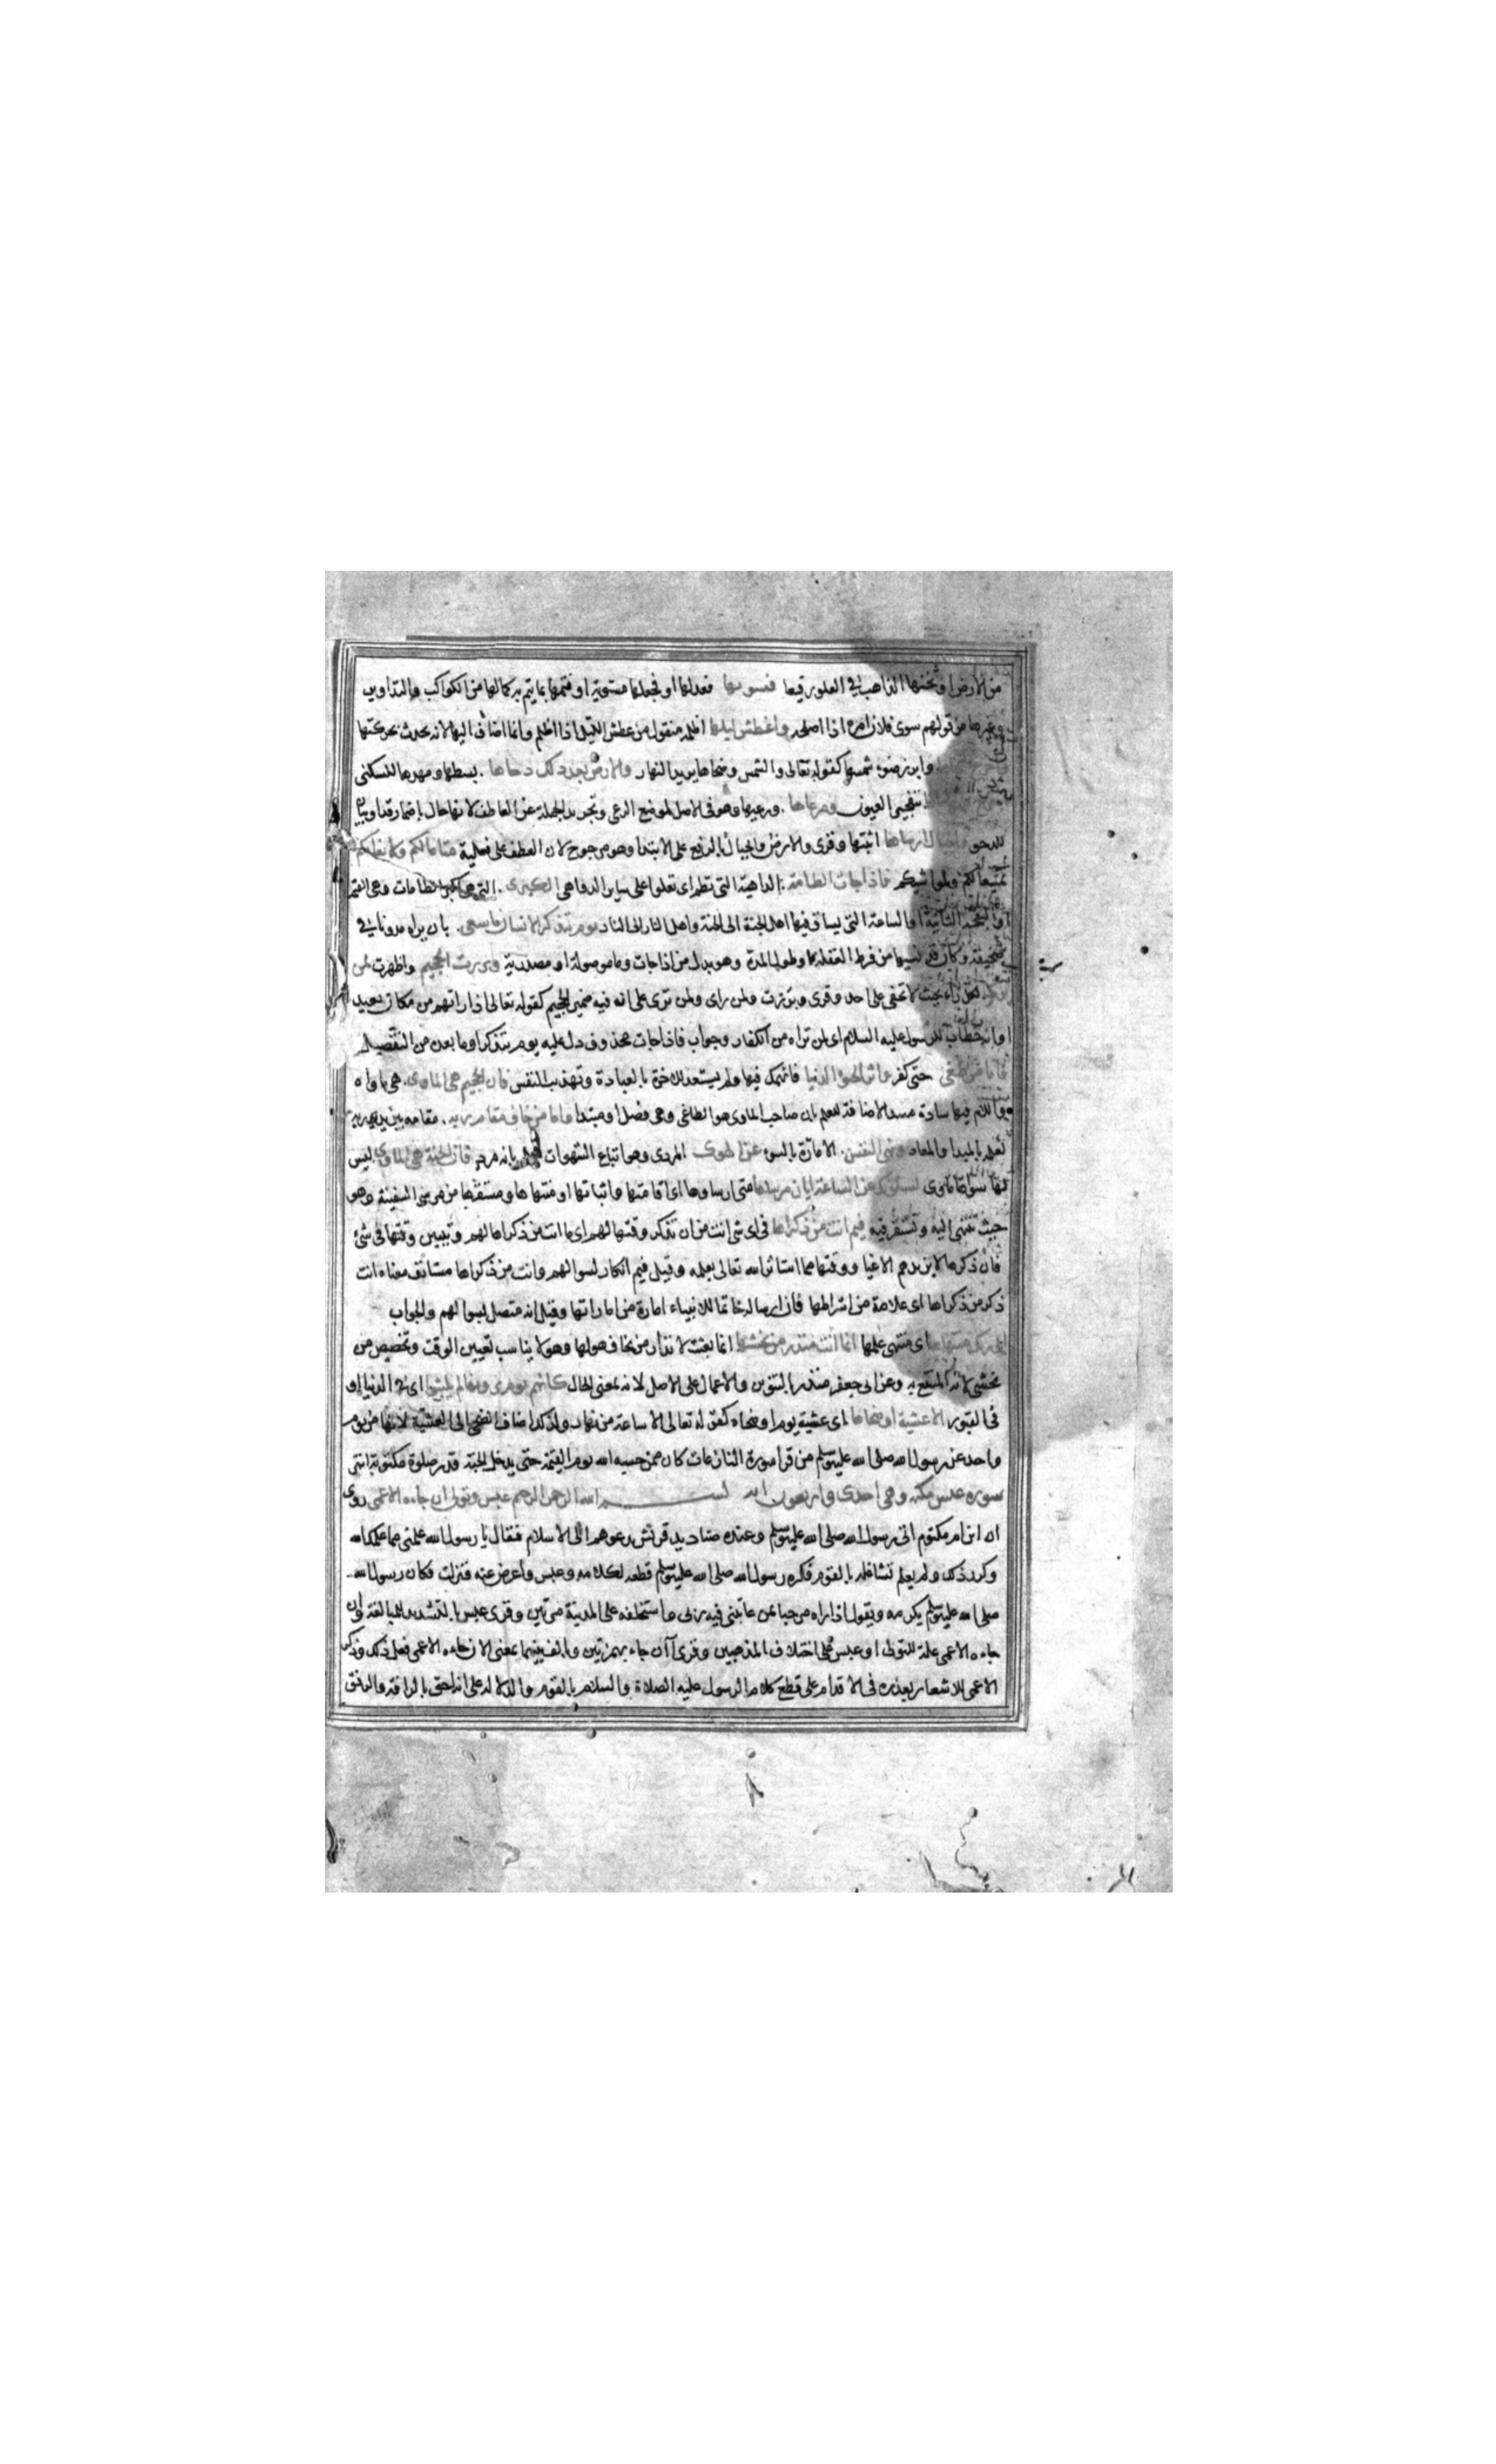 من الارض او ثخنها الذاهب في العلو رفيعا فسويها فعدلها او فجعلها مستوية او فتممها بما يتم به كمالها من الكواكب والتداوير
وغيرها من قولهم سوى فلان امره اذا اصلحه واغطش ليلها اظلمه منقول من غطش الليل اذا اظلم وانما اضاف اليها لانه يحدث بحركتها
وابرز ضوء شمسها كقوله تعالى والشمس وضحاها يريد النهار والارض بعد ذلك دحاها بسطها ومهدها للسكنى
بتفجير العيون ومرعاها ورعيها وهو في الاصل لموضع الرعي وتجريد الجملة عن العاطف لانها حال باضمار قد او بيان
للدحو والجبال ارساها اثبتها وقرى والارض والجبال بالرفع على الابتدا وهو مرجوح لان العطف على فعلية متاعا لكم ولانعامكم
تمتيعا لكم ولمواشيكم فاذا جات الطامة الداهية التي تطم اى تعلوا على ساير الدواهى الكبرى التي هي اكبر الطامات وهي القيمة
او النفخة الثانية او الساعة التي يساق فيها اهل الجنة الى الجنة واهل النار الى النار يوم يتذكر الانسان ما سعى بان يراه مدونا في
صحيفته وكان قد نسيها من فرط الغفلة او طول المدة وهو بدل من اذا جات وما موصولة او مصدرية وبرزت الجحيم واظهرت لمن
لكل راء بحيث لا تخفى على احد وقرى وبرزت ولمن راى ولمن ترى على انه فيه ضمير الجحيم كقوله تعالى اذا راتهم من مكان بعيد
او انه خطاب للرسول عليه السلام اى لمن تراه من الكفار وجواب فاذا جات محذوف دل عليه يوم يتذكر او ما بعده من التفصيل
فاما من طغى حتى كفر واثر الحيوة الدنيا فانهمك فيها ولم يستعد للاخرة بالعبادة وتهذيب النفس فان الجحيم هي الماوى هي ماواه
واللام فيها سادة مسد الاضافة للعلم بان صاحب الماوى هو الطاغى وهي فصل او مبتدا واما من خاف مقام ربه مقامه بين يدى ربه
لعلمه بالمبدا والمعاد ونهى النفس الامارة بالسوء عن الهوى المردى وهو اتباع الشهوات لعلمه بانه مرد فان الجنة هي الماوى ليس
لها سواها ماوى يسئلونك عن الساعة ايان مرساها متى ارساوها اى اقامتها واثباتها او منتهاها ومستقرها من مرسى السفينة وهو
حيث تنتهى اليه وتستقر فيه فيم انت من ذكراها في اى شي انت من ان تذكر وقتها لهم اى ما انت من ذكراها لهم وتبيين وقتها في شئ
فان ذكرها لا يزيدهم الا غيا ووقتها مما استاثر الله تعالى بعلمه وقيل فيم انكار لسوالهم وانت من ذكراها مستانف معناه انت
ذكر من ذكراها اى علامة من اشراطها فان ارساله خاتما للانبياء امارة من اماراتها وقيل انه متصل بسوالهم والجواب
الى ربك منتهاها اى منتهى علمها انما انت منذر من يخشها انما بعثت لانذار من يخاف هولها وهو لا يناسب تعيين الوقت وتخصيص من
يخشى لانه المنتفع به وعن ابى جعفر منذر بالتنوين والاعمال على الاصل لانه بمعنى الحال كانهم يوم يرونها لم يلبثوا اى في الدنيا او
في القبور الا عشية او ضحاها اى عشية يوم او ضحاه كقوله تعالى الا ساعة من نهار ولذلك اضاف الضحى الى العشية لانها من يوم
واحد عن رسول الله صلى الله عليه وسلم من قرا سورة النازعات كان ممن حبسه الله يوم القيمة حتى يدخل الجنة قدر صلوة مكتوبة انتهى
سورة عبس مكية وهي احدى واربعون اية بســـم الله الرحمن الرحيم عبس وتولى ان جاءه الاعمى روى
ان ابن ام مكتوم اتى رسول الله صلى الله عليه وسلم وعنده صناديد قريش يدعوهم الى الاسلام فقال يا رسول الله علمنى مما علمك الله
وكرر ذلك ولم يعلم تشاغله بالقوم فكره رسول الله صلى الله عليه وسلم قطعه لكلامه وعبس واعرض عنه فنزلت فكان رسول الله
صلى الله عليه وسلم يكرمه ويقول اذا راه مرحبا بمن عاتبنى فيه ربى واستخلفه على المدينة مرتين وقرى عبس بالتشديد للمبالغة وان
جاءه الاعمى علة للتولى او عبس على اختلاف المذهبين وقرى اان جاء بهمزتين وبالف بينهما بمعنى الان جاءه الاعمى فعل ذلك وذكر
الاعمى للاشعار بعذره في الاقدام على قطع كلام الرسول عليه الصلاة والسلام بالقوم والدلالة على انه احق بالرافة والرفق